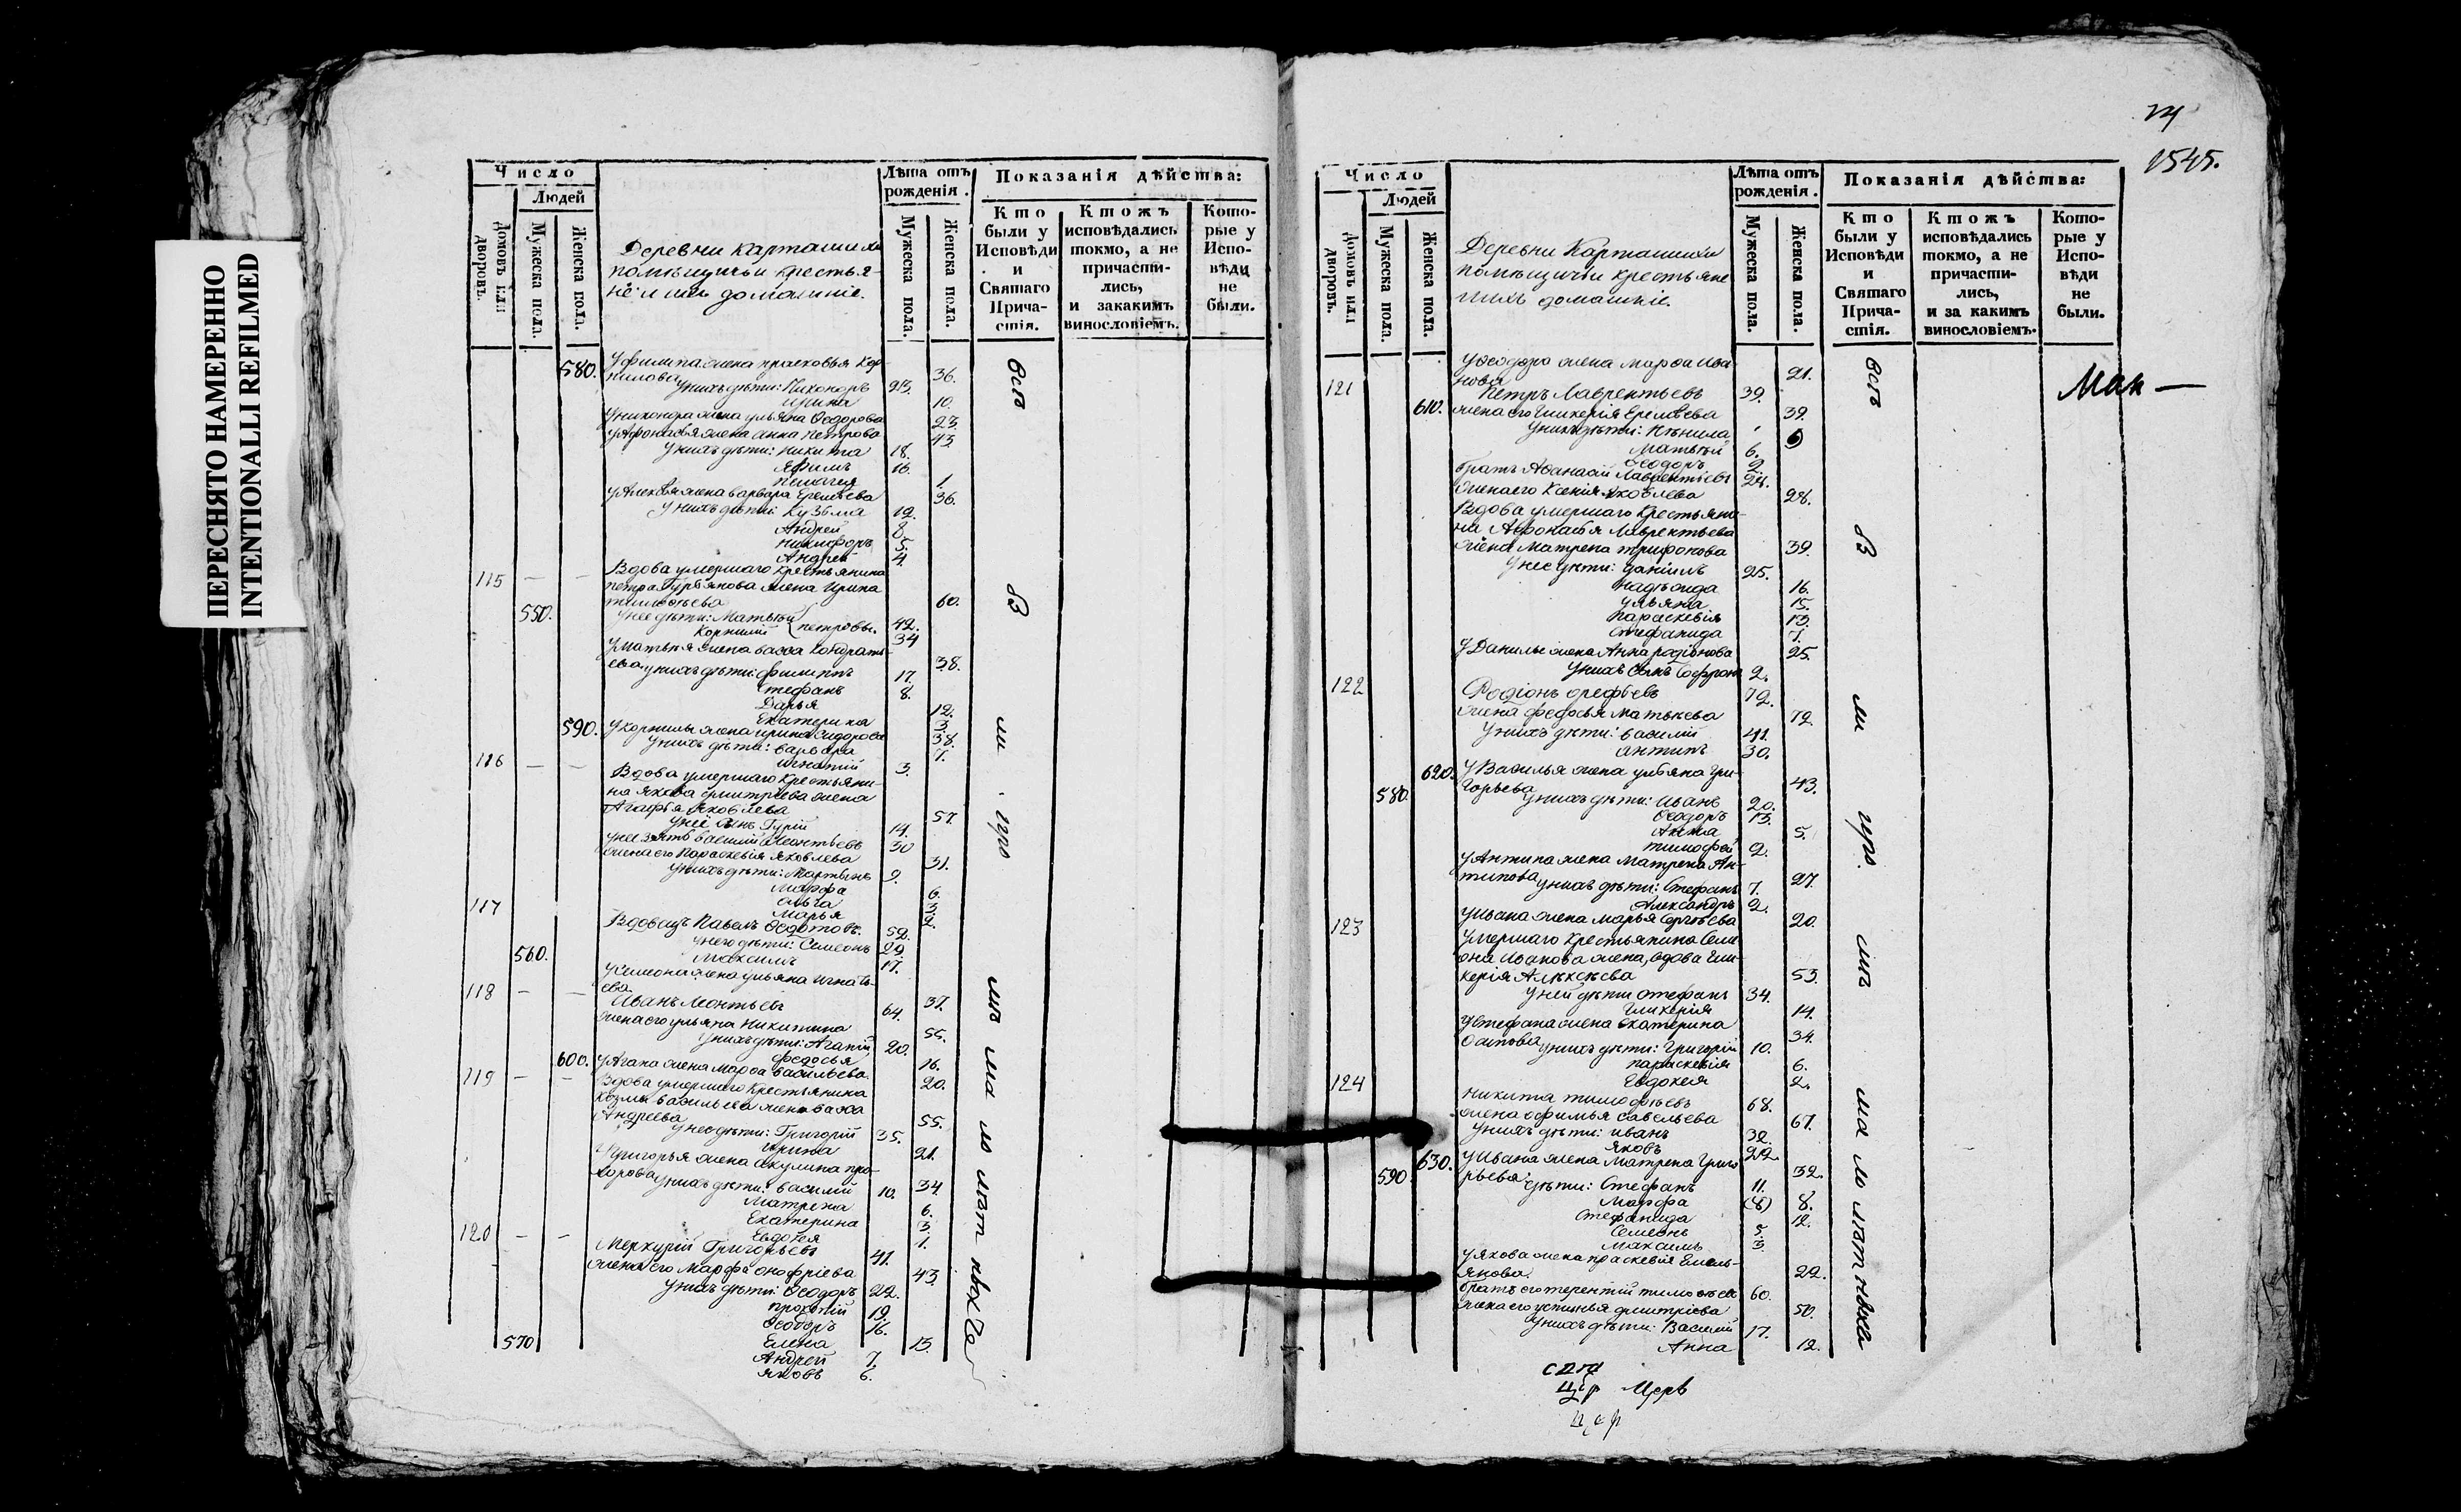 ПЕРЕСНЯТО НАМЕРЕННО
INTENTIONALLI REFILMED
Число
Людей
Домовъ или дворовъ.
Мужеска пола.
Женска пола.
Деревни Карташихи
помѣщичьи крестья-
не и ихъ домашніе.
Лѣта отъ рожденія.
Мужеска пола.
Женска пола.
Показанія дѣйства:
Кто были у Исповѣди и Святаго Прича-стія.
Ктожъ исповѣдались токмо, а не причасти-лись, и закакимъ винословіемъ.
Кото-рые у Испо-вѣди не были.
580. У Филипа жена прасковья Кор-
нилова 36.
у нихъ дѣти: Никаноръ 23.
Ирина 10.
У никанора жена ульяна Ѳедорова 23.
У Афонасья жена анна петрова 43.
У нихъ дѣти: никита 18.
Яфимъ 16.
Пелагея 1.
У Алексѣя жена варвара Еремѣева 36.
У нихъ дѣти: Кузьма 12.
Андрей 8.
никифоръ 5.
Андрей 4.
115 — — Вдова умершаго крестьянина
петра Гурьянова жена Ирина
тимофѣева 60.
550. У нее дѣти: Матвѣй петровы. 42.
Корнилій 34
У матвѣя жена васса Кондрать-
ева 38.
у нихъ дѣти: филиппъ 17.
Стефанъ 8.
Дарья 12.
Екатерина 3.
590. У корнилы жена ирина Сидорова 38.
У нихъ дѣти: варвара 7.
игнатій 3.
116 — — Вдова умершаго крестьяни-
на якова дмитріева жена
Агафья яковлева 57.
у неё сынъ Гурій 14.
у нее зять василій Леонтьевъ 30
жена его Параскевія яковлева 31.
У нихъ дѣти: Мартынъ 9.
Марфа 6.
ольга 3.
Марья 2.
117 Вдовецъ Павелъ Ѳедотовъ. 52.
у него дѣти: Семеонъ 29.
560. Максимъ 17.
У семеона жена ульяна игнать-
ева 37.
118 — — Иванъ Леонтьевъ 64.
жена его ульяна никитина 55.
У нихъ дѣти: Агапій 20.
федосья 16.
600. У Агапа жена марѳа васильева 20.
119 — — Вдова умершаго крестьянина
козмы васильева жена васса
Андреева 55.
у нее дѣти: Григорій 35.
ирина 21.
У григорья жена акулина про-
хорова 34.
у нихъ дѣти: василій 10.
Матрена 6.
Екатерина 3.
Евдокея 1.
120 — — Меркурій Григорьевъ 41.
жена его Марфа онофріева 43.
У нихъ дѣти: Ѳеодоръ 22.
прокопій 19.
Ѳеодоръ 16.
570 Елена 13.
Андрей 7.
яковъ 6.
всѣ
24
1545.
Число
Людей
Домовъ или дворовъ.
Мужеска пола.
Женска пола.
Деревни Карташихи
помѣщичьи крестьяне
и ихъ домашніе.
Лѣта отъ рожденія.
Мужеска пола.
Женска пола.
Показанія дѣйства:
Кто были у Исповѣди и Святаго Прича-стія.
Ктожъ исповѣдались токмо, а не причасти-лись, и за какимъ винословіемъ.
Кото-рые у Испо-вѣди не были.
У Ѳеодора жена марѳа ива-
нова 21.
121 Петръ Лаврентьевъ 39.
610. жена его Гликерія Еремѣева 39.
У нихъ дѣти:
Матвѣй 6.
Ѳеодоръ 2.
братъ Аѳанасій Лаврентьевъ 24.
жена его Ксенія яковлева 24.
Вдова умершаго крестьяни-
на Афонасья Лаврентьева
жена Матрена трифонова 39.
У нее дѣти: даніилъ 25.
надѣжида 16.
ульяна 15.
параскевія 13.
Стефанида 7.
У Данилы жена Анна родіонова 25.
У нихъ сынъ Софронъ 2.
122 Родіонъ орефьевъ 72.
жена федосья Матвѣева 72.
У нихъ дѣти: василій 41.
антипъ 30.
620. У Василья жена ульяна Гри-
горьева 43.
580. У нихъ дѣти: иванъ 20.
Ѳеодоръ 13.
Анна 5.
тимофей 2.
У Антипа жена Матрена Ан-
типова 27.
у нихъ дѣти: Стефанъ 7.
Александръ 2.
У ивана жена марья Сергѣева 20.
123 Умершаго крестьянина Семе-
она Иванова жена, вдова Гли-
керія Алексѣева 53.
У ней дѣти Стефанъ 34.
Гликерія 14.
У Стефана жена екатерина
Осипова 34.
у нихъ дѣти: Григорій 10.
параскевія 6.
Евдокея 2.
124 Никита тимофѣевъ 68.
жена ефимья савельева 67.
У нихъ дѣти: иванъ 32.
яковъ 22.
630. У ивана жена Матрена Григо
рьева 32.
590 дѣти: Стефанъ 11.
Марфа (8) 8.
Стефанида 12.
Семеонъ 5.
Максимъ 3.
У якова жена праскевія Емель-
янова 22.
братъ его терентій тимофѣевъ 60.
жена его устинья дмитріева 50.
У нихъ дѣти: Василій 17.
Анна 12.
всѣ